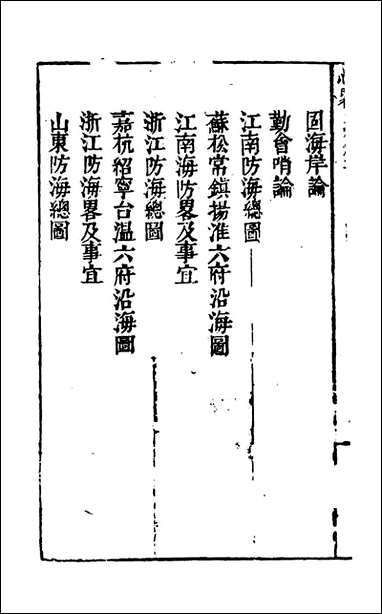 固海岸論
勤會哨論
江南防海總圖
蘇松常鎮揚淮六府沿海圖
江南海防畧及事宜
浙江防海總圖
嘉杭紹寧台温六府沿海圖
浙江防海畧及事宜
山東防海總圖